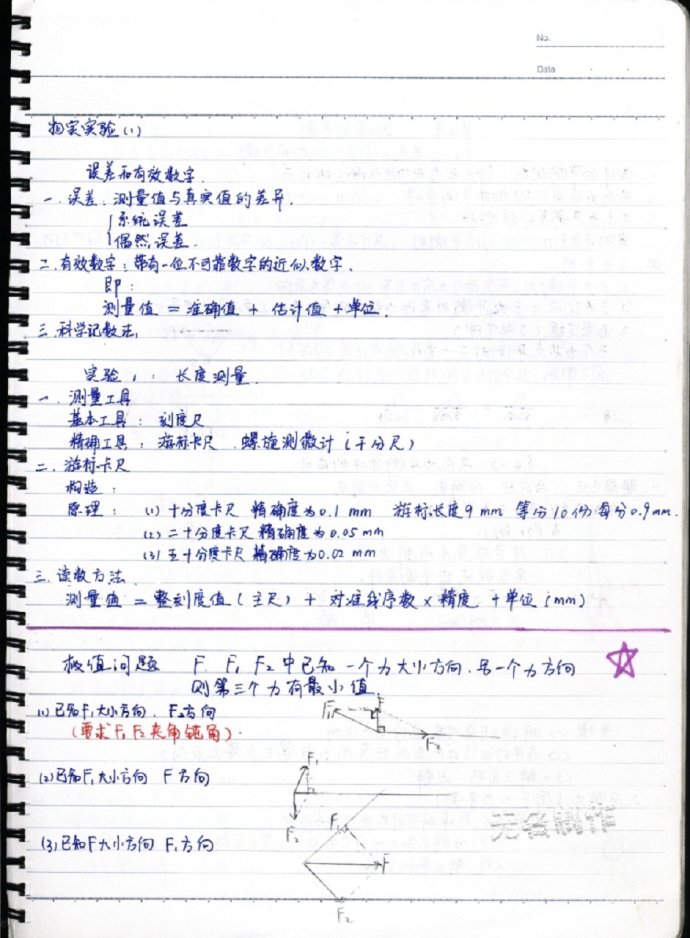 No.
Date
物实实验(1)
误差和有效数字.
一. 误差. 测量值与真实值的差异.
系统误差
偶然误差.
二. 有效数字: 带有一位不可靠数字的近似数字.
即:
测量值 = 准确值 + 估计值 + 单位.
三. 科学记数法
实验, : 长度测量.
一. 测量工具
基本工具: 刻度尺
精确工具: 游标卡尺 . 螺旋测微计 (千分尺)
二. 游标卡尺
构造:
原理: (1) 十分度卡尺 精确度为0.1 mm 游标长度9 mm 等分10份每分0.9mm.
(2) 二十分度卡尺 精确度为0.05 mm
(3) 五十分度卡尺 精确度为0.02 mm
三. 读数方法.
测量值 = 整刻度值 (主尺) + 对准线序数 × 精度 + 单位 (mm)
极值问题 F F₁ F₂ 中已知一个力大小方向. 另一个力方向
则第三个力有最小值
(1) 已知F₁大小方向. F₂方向
(要求F₁F₂夹角钝角).
F₁ F F₂
(2) 已知F₁大小方向 F方向
F₁
F₂
(3) 已知F大小方向 F₁方向
F₁
F
F₂
无名制作